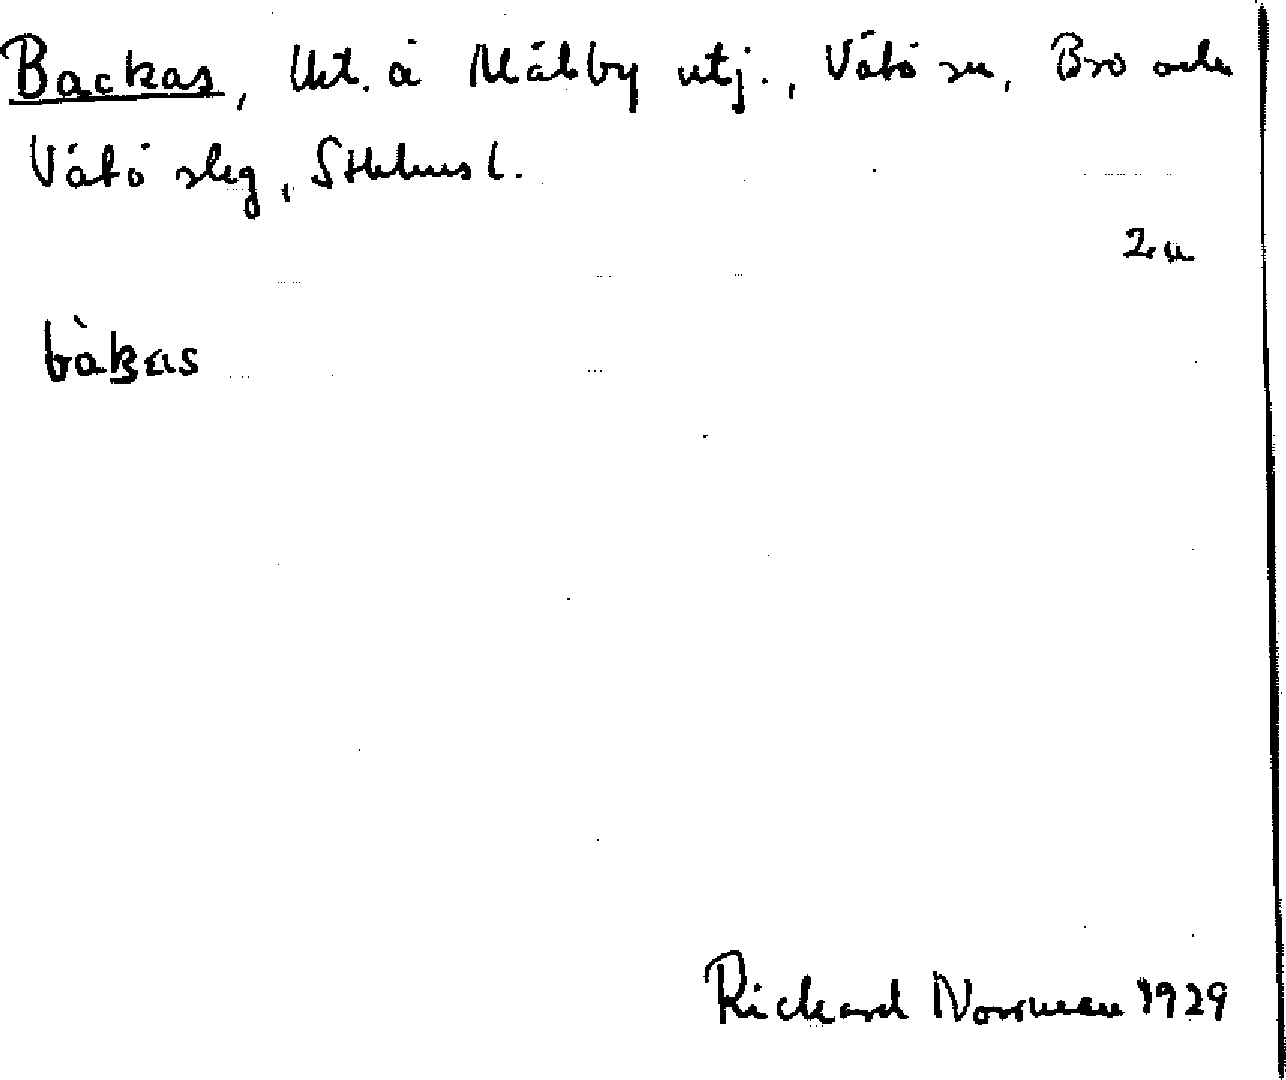 Backas, lht. å Målby utj., Vätö sn, Bro och
Vätö slg, Sthlms l.
2u
bàkas
Rickard Norrman 1929